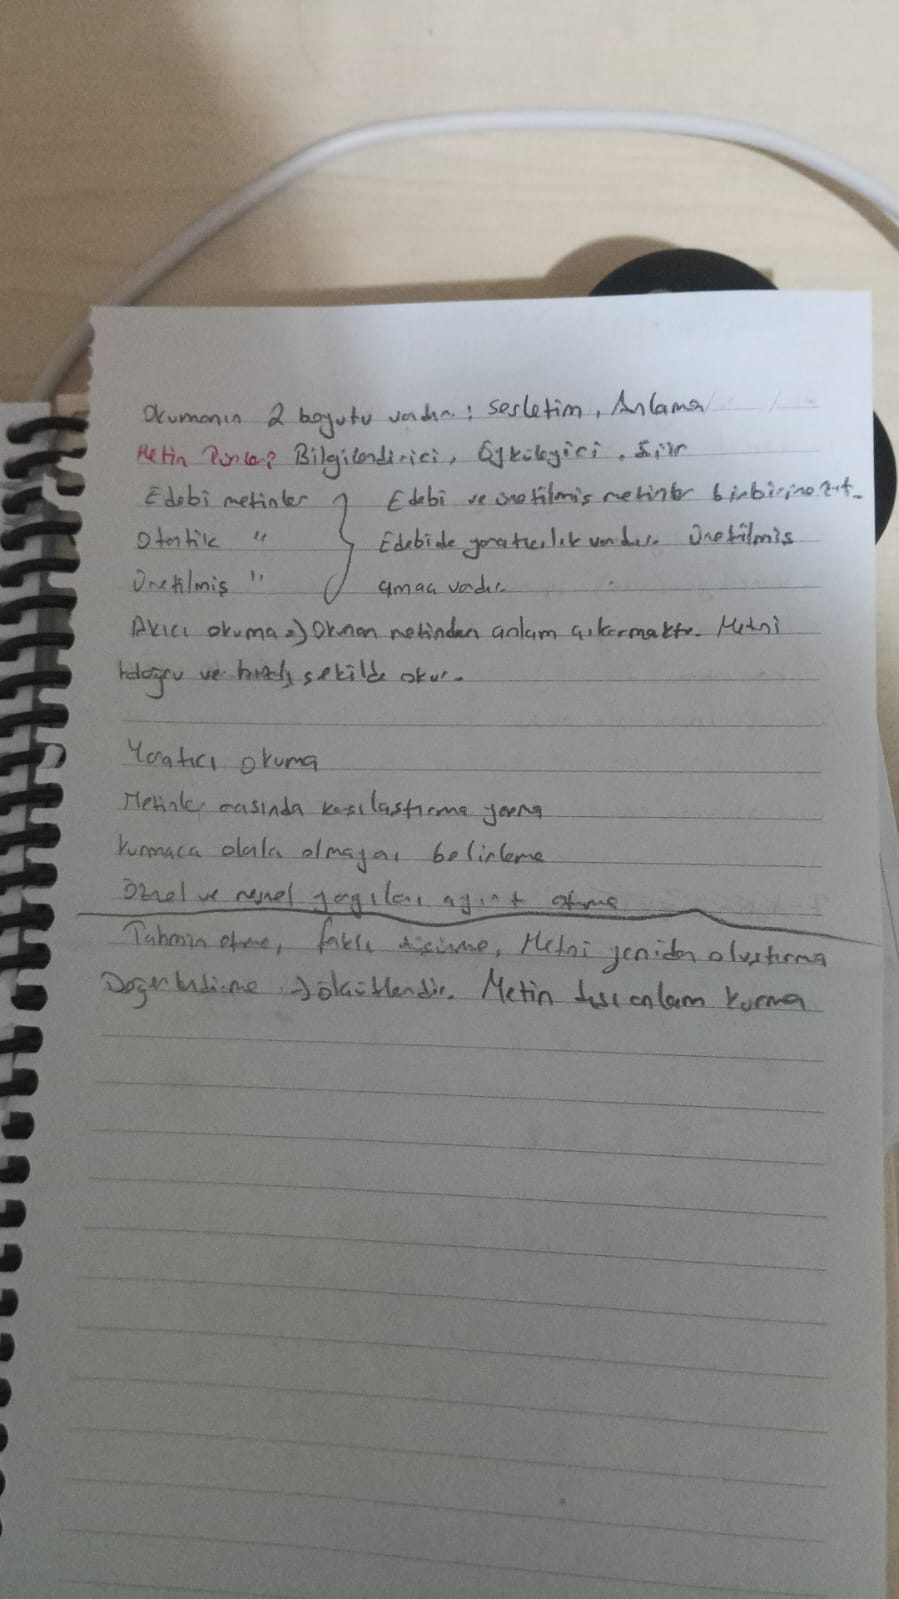 Okumanın 2 boyutu vardır: Sesletim, Anlama
Metin Türleri? Bilgilendirici, Öyküleyici, Şiir
Edebi metinler } Edebi ve üretilmiş metinler birbirine zıt.
Otantik " Edebide yaratıcılık vardır. Üretilmiş
Üretilmiş " amaç vardır.
Akıcı okuma => Okunan metinden anlam çıkarmaktır. Metni
doğru ve hızlı şekilde okur.
Yaratıcı okuma
Metinler arasında karşılaştırma yapma
Kurmaca olanla olmayanı belirleme
Öznel ve nesnel yargıları ayırt etme
Tahmin etme, farklı düşünme, Metni yeniden oluşturma
Değerlendirme => ölçütlendir. Metin dışı anlam kurma